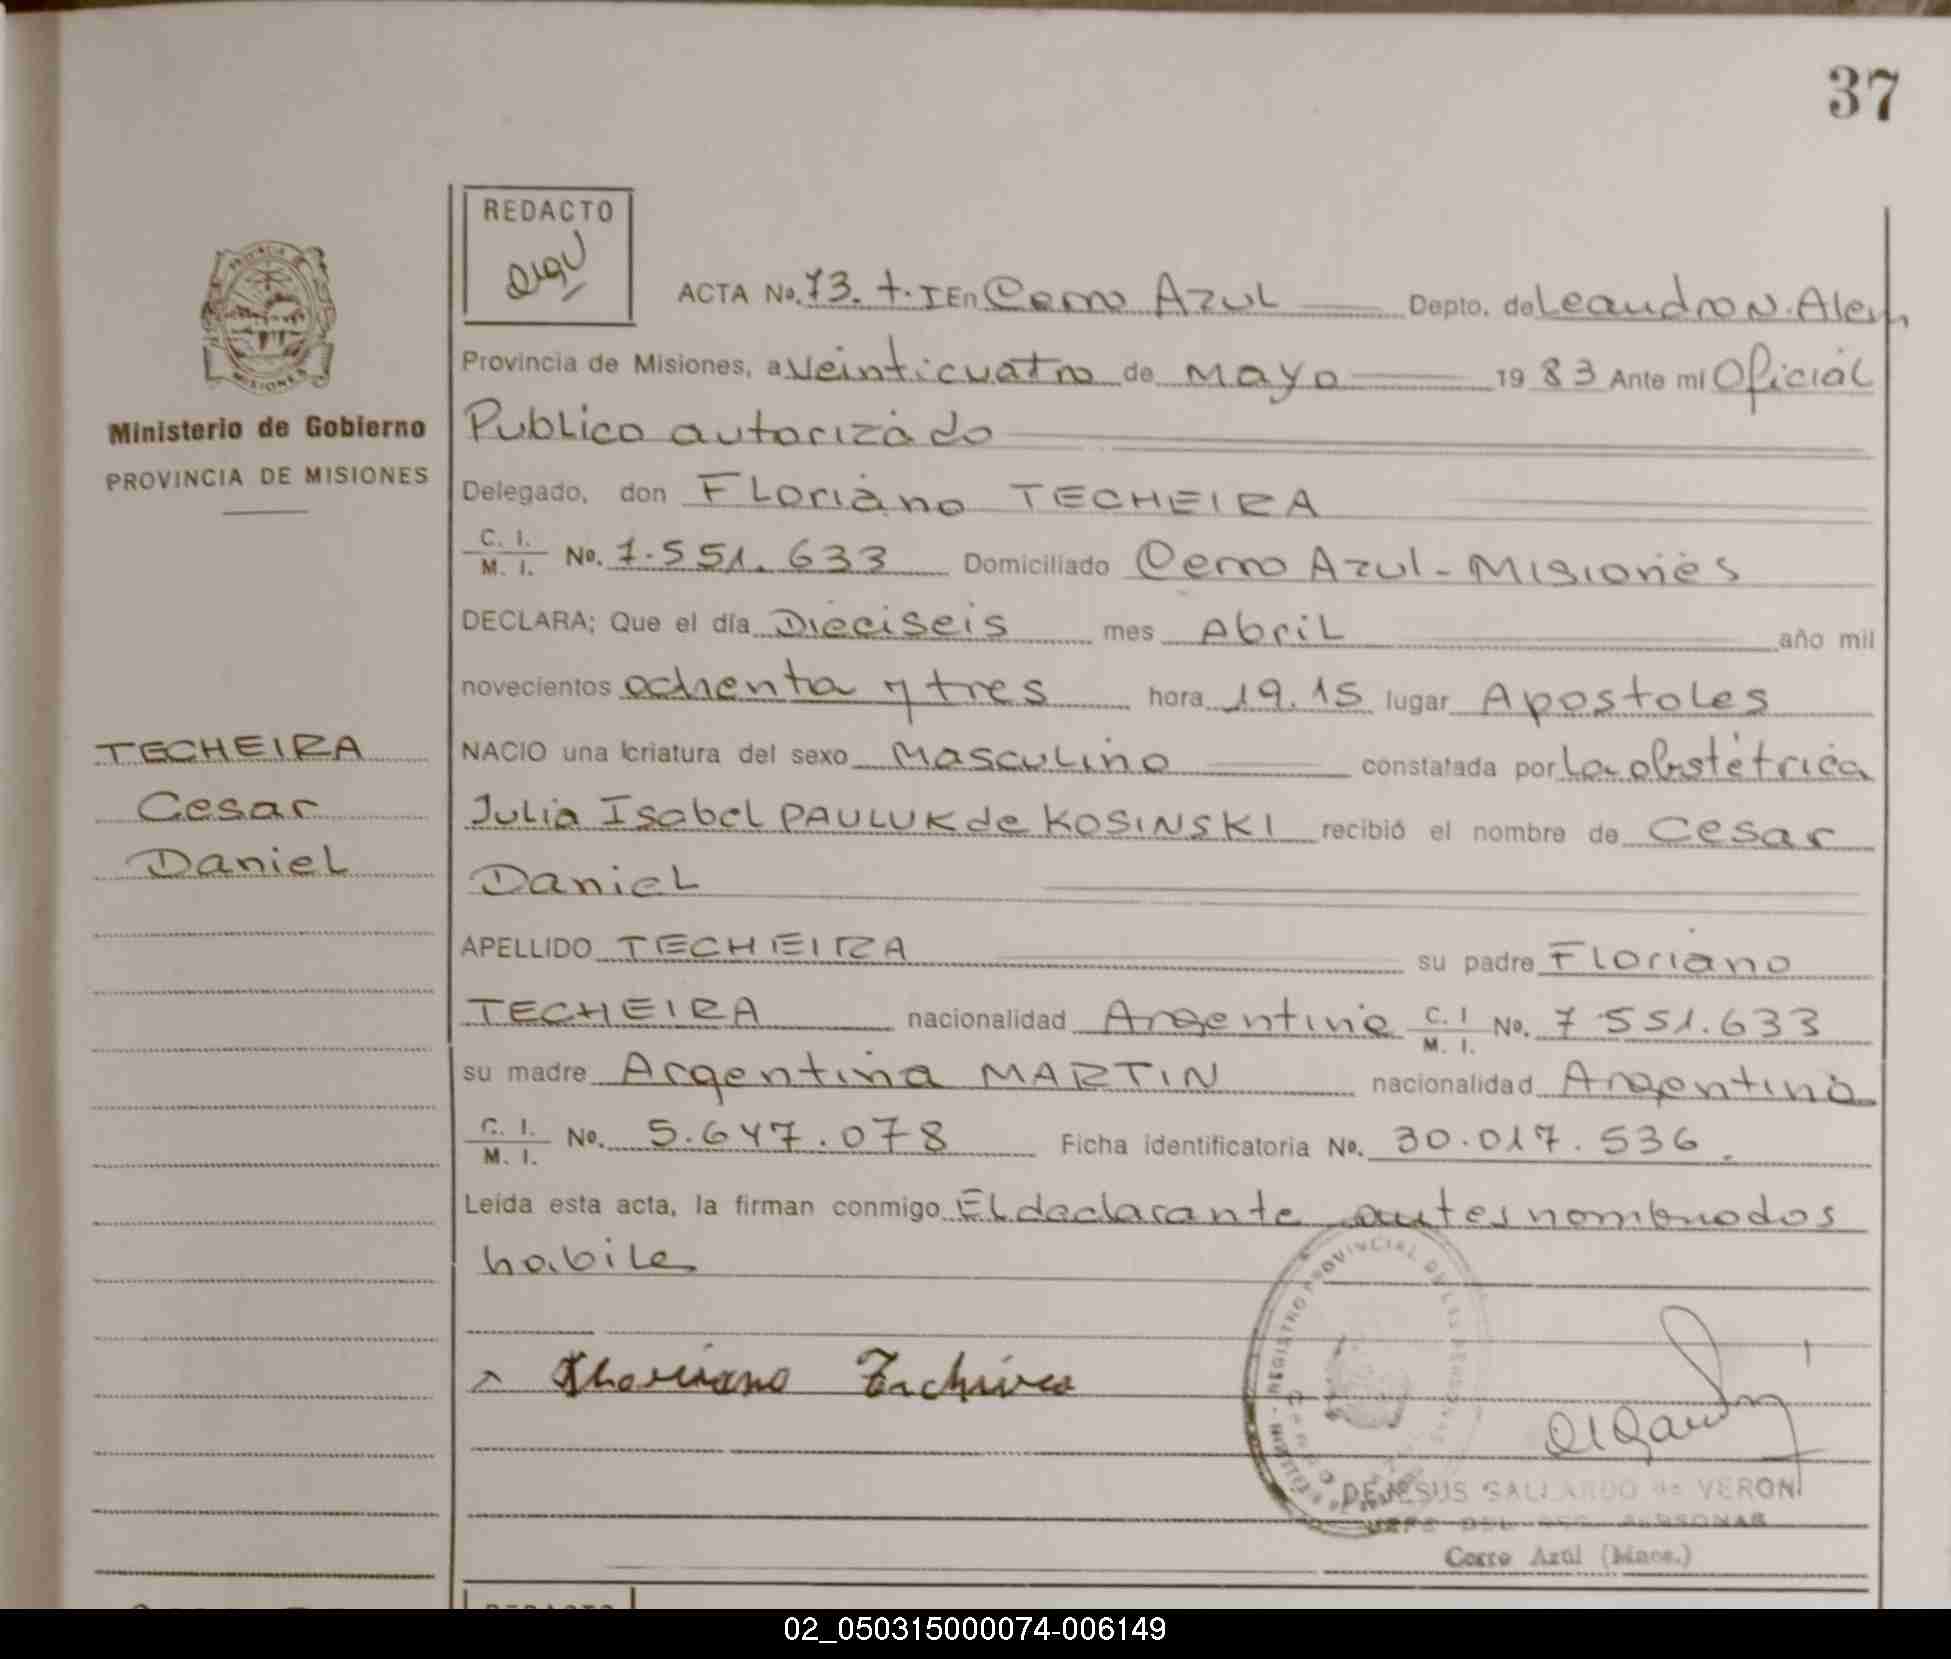 37
REDACTO
PROVINCIA
MISIONES
Ministerio de Gobierno
PROVINCIA DE MISIONES
ACTA No. 73. t. I En Cerro Azul Depto. de Leandro N. Alem
Provincia de Misiones, a veinticuatro de Mayo 19 83 Ante mi Oficial
Publico autorizado
Delegado, don Floriano TECHEIRA
C. I. M. I. No. 7.551.633 Domiciliado Cerro Azul - Misiones
DECLARA; Que el día Dieciseis mes Abril año mil
novecientos ochenta y tres hora 19.15 lugar Apostoles
NACIO una criatura del sexo Masculino constatada por La obstétrica
Julia Isabel PAULUK de KOSINSKI recibió el nombre de Cesar
Daniel
APELLIDO TECHEIRA su padre Floriano
TECHEIRA nacionalidad Argentina C. I M. I. No. 7551.633
su madre Argentina MARTIN nacionalidad Argentina
C. I. M. I. No. 5.647.078 Ficha identificatoria No. 30.017.536.
Leída esta acta, la firman conmigo El declarante antes nombrados
habile
TECHEIRA
Cesar
Daniel
REGISTRO PROVINCIAL DE LAS PERSONAS
DE JESUS GALLARDO de VERON
Cerro Azúl (Mnes.)
REDACTO
02_050315000074-006149